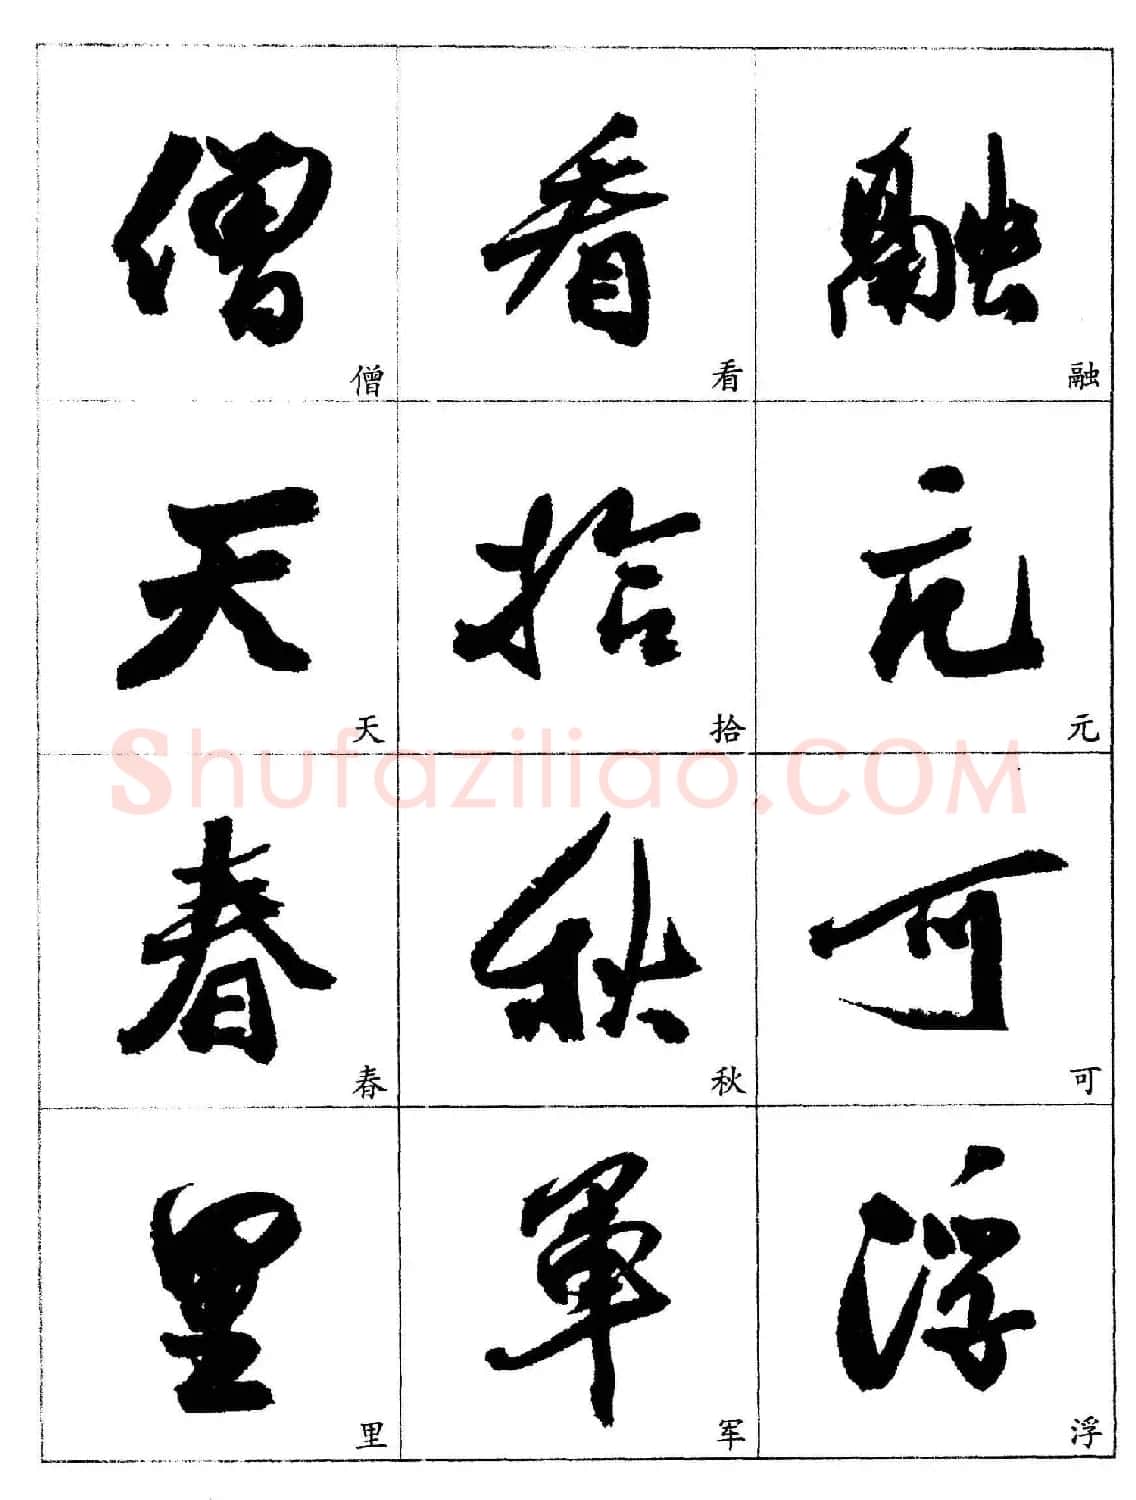 僧 看 融
僧 看 融
天 拾 元
天 拾 元
Shufaziliao.COM
春 秋 可
春 秋 可
里 軍 浮
里 军 浮